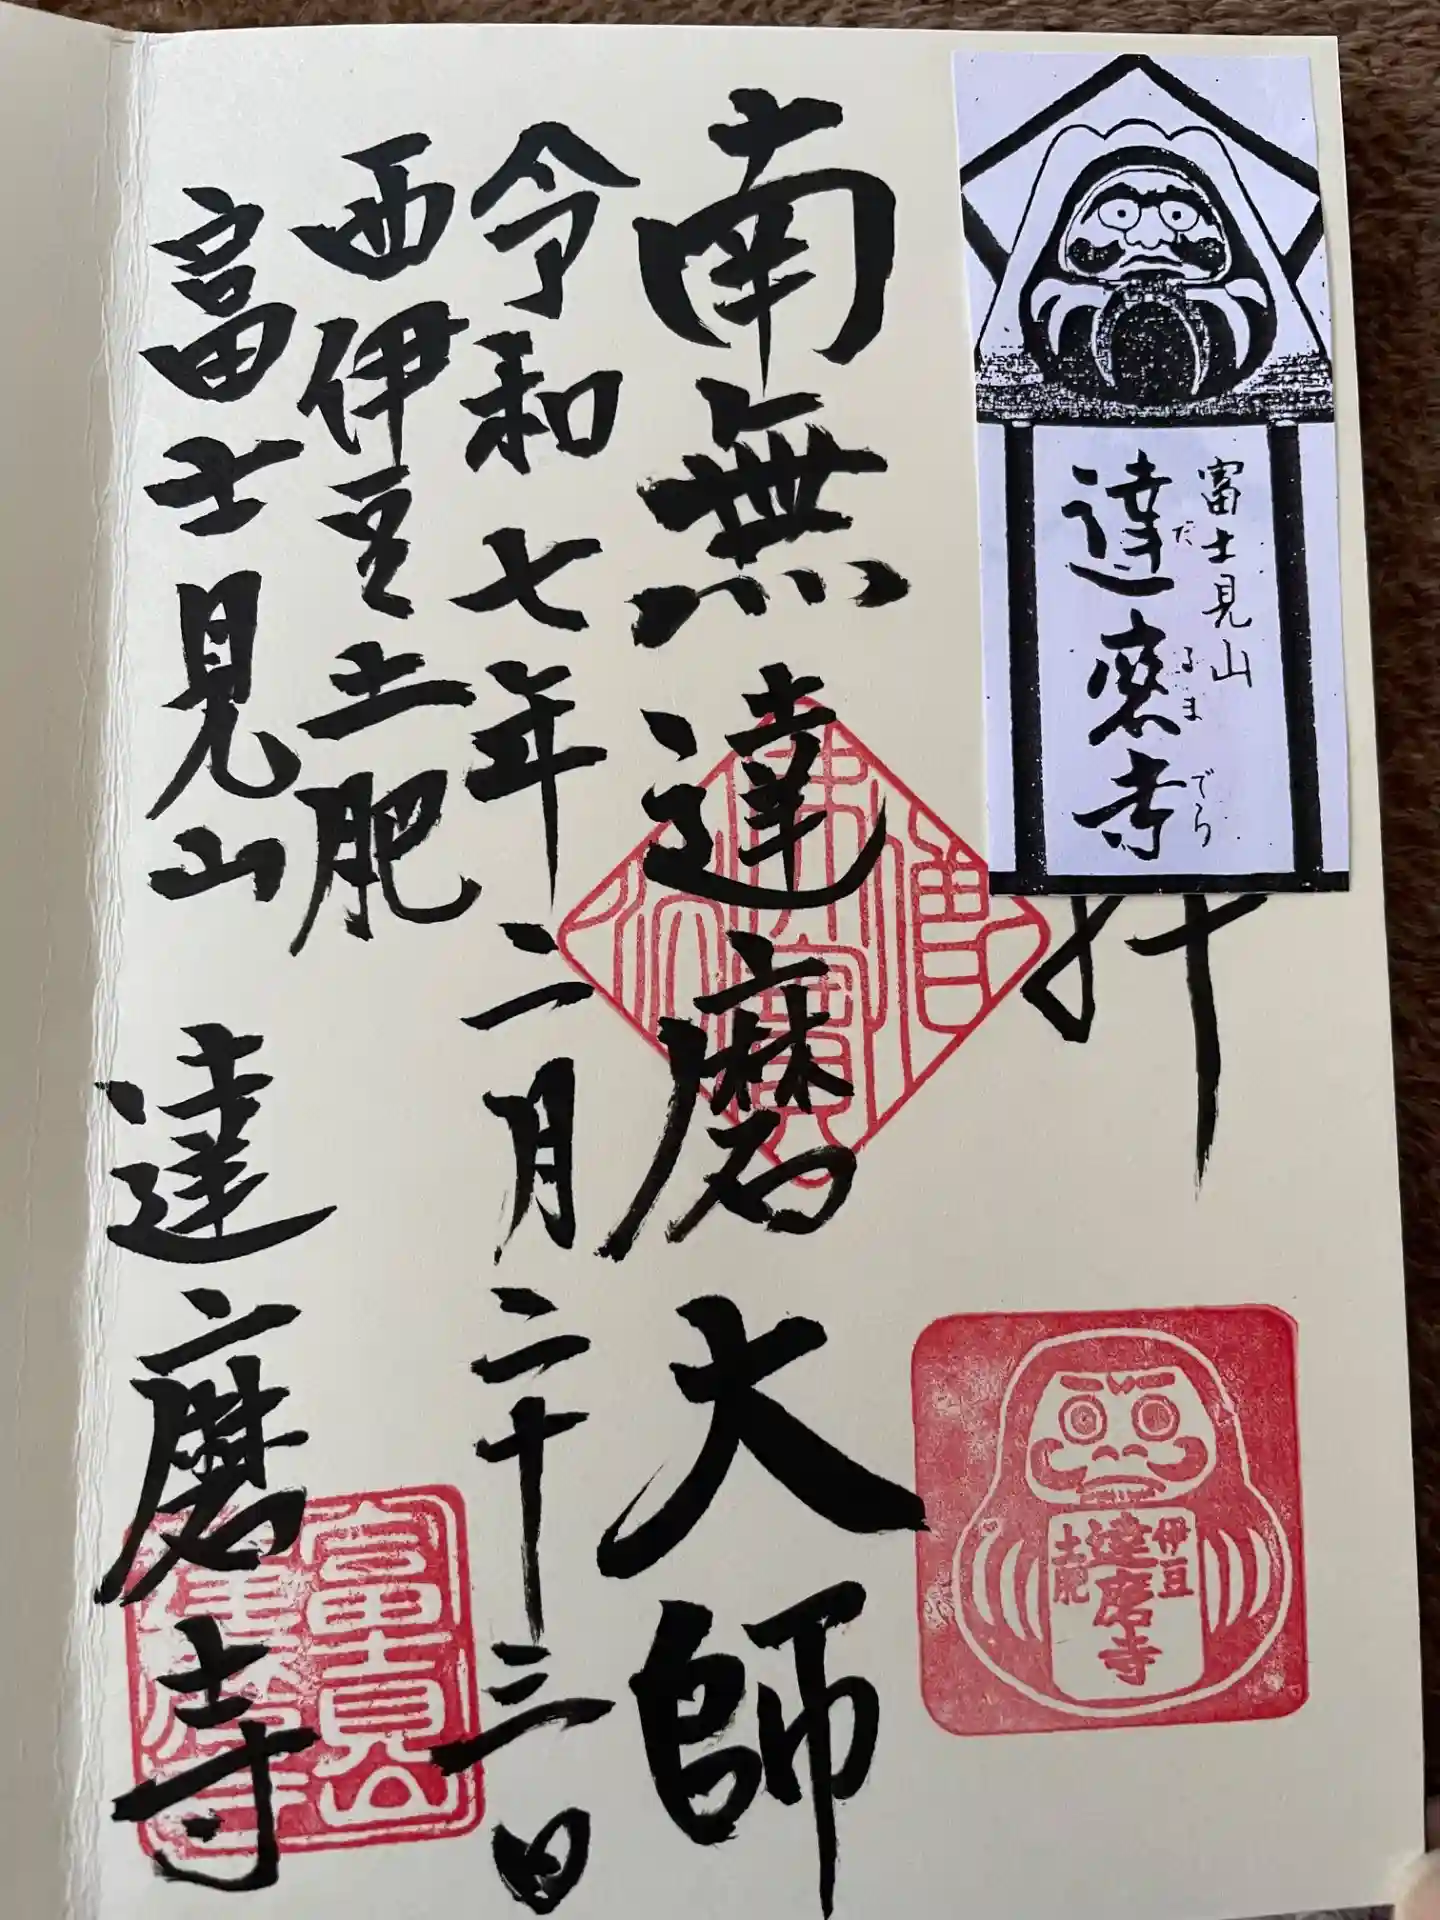 富士見山
達磨寺
だるまでら
拝
南無達磨大師
令和七年二月二十三日
西伊豆土肥
富士見山 達磨寺
佛法僧寳
伊豆
達磨寺
土肥
富士見山
達磨寺